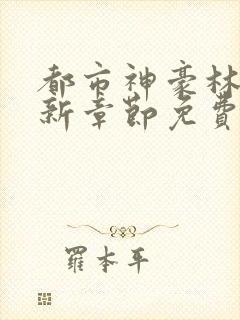 都市神豪林
新章節免費
羅本平